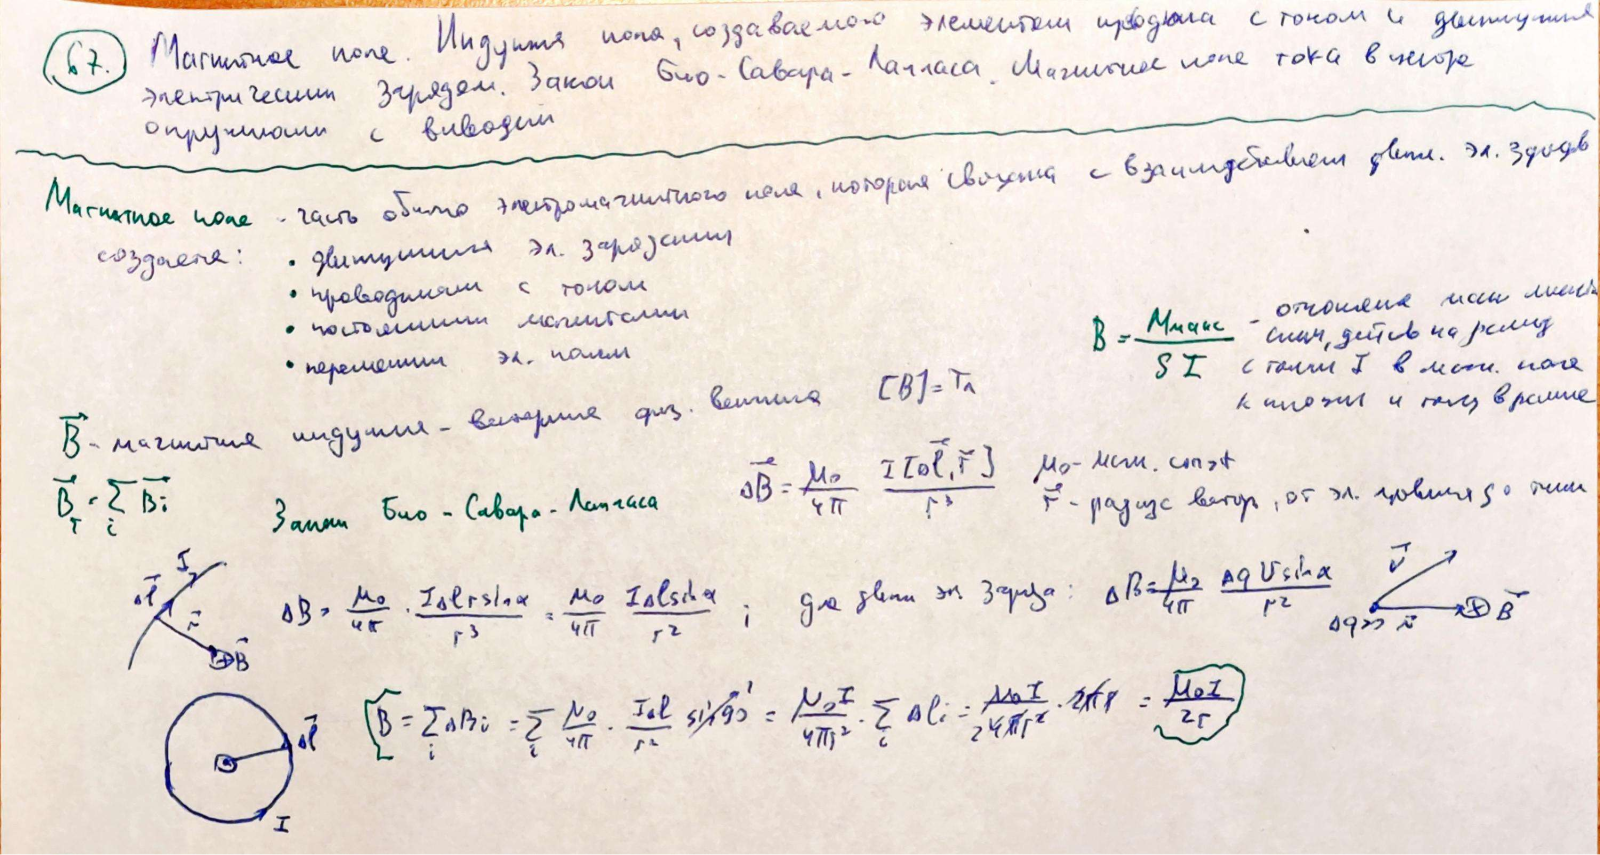 67. Магнитное поле. Индукция поля, создаваемого элементом провода с током и движущимся
электрическим зарядом. Закон Био-Савара-Лапласа. Магнитное поле тока в центре
окружности с выводом
Магнитное поле - часть общего электромагнитного поля, которая связана с взаимодействием движ. эл. зарядов
создается:
• движущимися эл. зарядами
• проводниками с током
• постоянными магнитами
• переменным эл. полем
B = Mмакс / SI - отношение макс момента
сил, действ на рамку
с током I в магн. поле
к площади и току в рамке
B⃗ - магнитная индукция - векторная физ. величина [B] = Тл
B⃗ = Σ B⃗i
i
Закон Био-Савара-Лапласа
ΔB⃗ = μ₀/4π I[Δl⃗, r⃗]/r³ μ₀ - магн. const
r⃗ - радиус вектор, от эл. провода до точки
I Δl⃗ r⃗ B⃗
ΔB = μ₀/4π · IΔl r sinα/r³ = μ₀/4π IΔl sinα/r² ; для движ эл. заряда: ΔB = μ₀/4π Δq v sinα/r²
v⃗ Δq>0 r⃗ B⃗
B = Σ ΔBi = Σ μ₀/4π · IΔl/r² sin90 ¹ = μ₀I/4πr² · Σ Δli = μ₀I/2 4πr² · 2πr = μ₀I/2r
Δl⃗
I